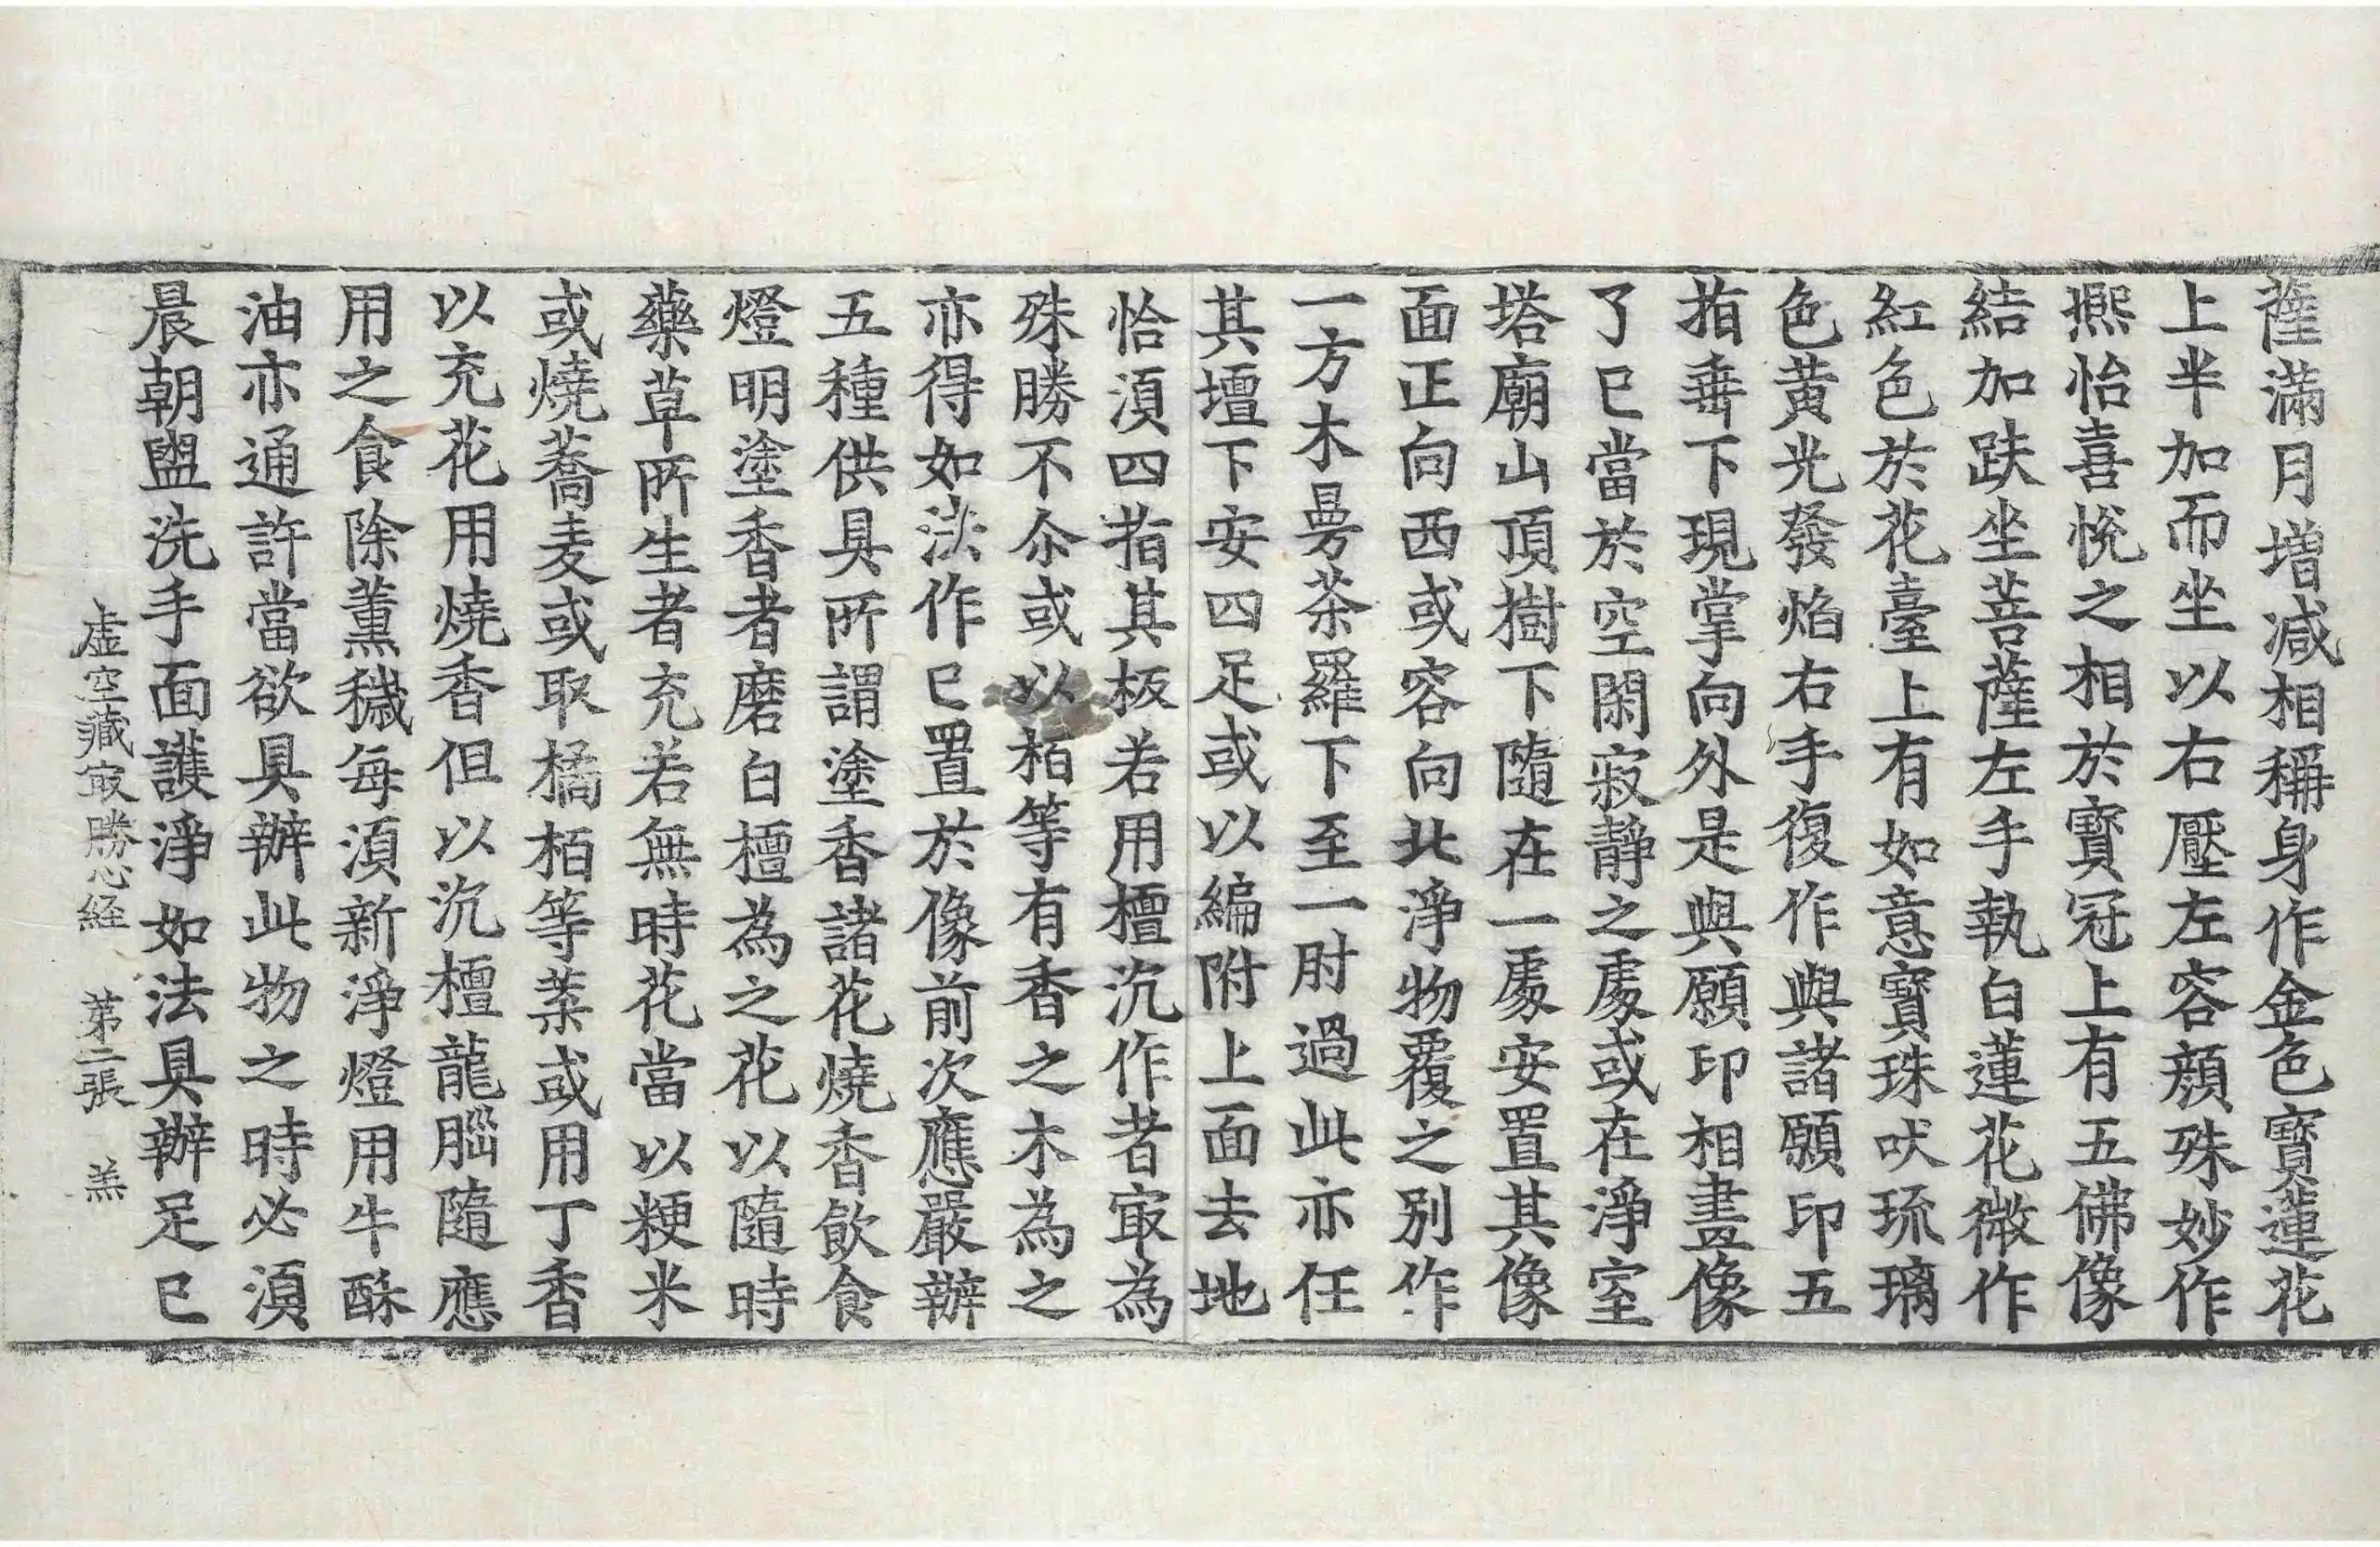 薩滿月増減相稱身作金色寳蓮花
上半加而坐以右壓左容顔殊妙作
熈怡喜悅之相於寳冠上有五佛像
結加趺坐菩薩左手執白蓮花微作
紅色於花臺上有如意寳珠吠琉璃
色黄光發焰右手復作與諸願印五
指垂下現掌向外是與願印相畫像
了已當於空閑寂靜之處或在淨室
塔廟山頂樹下隨在一處安置其像
面正向西或容向北淨物覆之別作
一方木曼荼羅下至一肘過此亦任
其壇下安四足或以編附上面去地
恰湏四指其板若用檀沉作者㝡為
殊勝不尒或以栢等有香之木為之
亦得如法作已置於像前次應嚴辦
五種供具所謂塗香諸花燒香飲食
燈明塗香者磨白檀為之花以隨時
藥草所生者充若無時花當以粳米
或燒蕎麦或取橘栢等葉或用丁香
以充花用燒香但以沉檀龍腦隨應
用之食除薫穢每湏新淨燈用牛酥
油亦通許當欲具辦此物之時必湏
晨朝盥洗手面護淨如法具辦足已
虚空藏㝡勝心経　第二張　羔